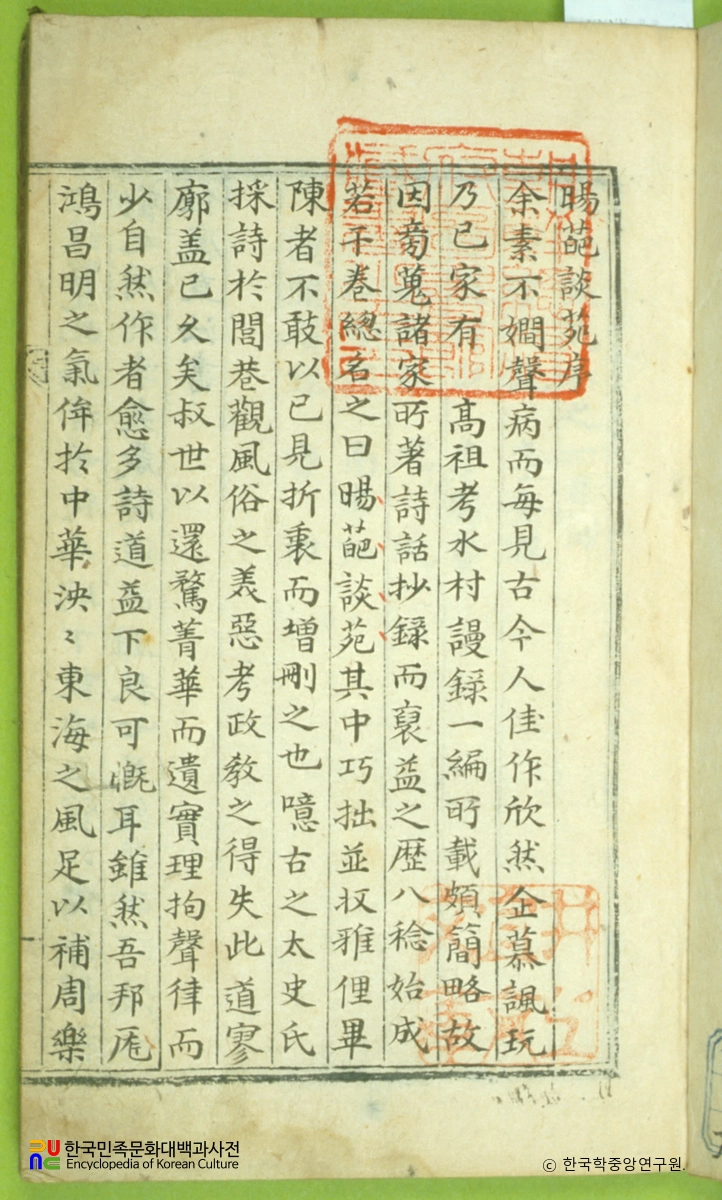 暘葩談苑序
余素不嫺聲病而每見古今人佳作欣然企慕諷玩
乃已家有 高祖考水村謾錄一編所載頗簡略故
因裒蒐諸家所著詩話抄錄而裒益之歷八稔始成
若干卷總名之曰暘葩談苑其中巧拙並收雅俚畢
陳者不敢以已見折衷而增刪之也噫古之太史氏
採詩於閭巷觀風俗之美惡考政教之得失此道寥
廓盖已久矣叔世以還騖菁華而遺實理拘聲律而
少自然作者愈多詩道益下良可慨耳雖然吾邦厖
鴻昌明之氣侔於中華泱〻東海之風足以補周樂
한국민족문화대백과사전
Encyclopedia of Korean Culture
ⓒ 한국학중앙연구원.